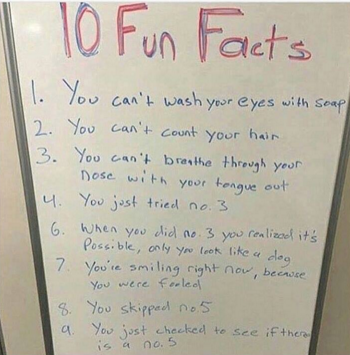 10 Fun Facts
1. You can't wash your eyes with soap
2. You can't count your hair
3. You can't breathe through your
nose with your tongue out
4. You just tried no. 3
6. When you did no. 3 you realized it's
Possible, only you look like a dog
7. You're smiling right now, because
You were fooled
8. You skipped no.5
9. You just checked to see if there
is a no. 5